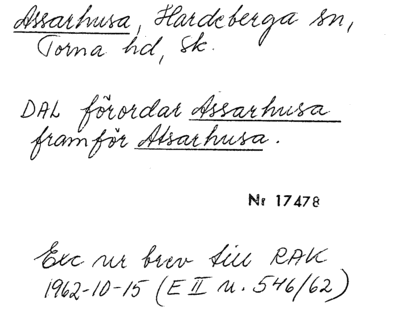 Assarhusa, Hardeberga sn,
Torna hd, Sk.
DAL förordar Assarhusa
framför Atsarhusa.
Nr 17478
Exc ur brev till RAK
1962-10-15 (E II n. 546/62)